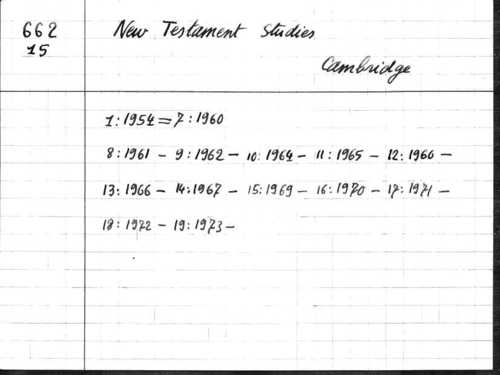 662 New Testament Studies
15
Cambridge
1:1954=7:1960
8:1961 - 9:1962 - 10:1964 - 11:1965 - 12:1960 -
13:1966 - 14:1967 - 15:1969 - 16:1970 - 17:1971 -
18:1972 - 19:1973 -